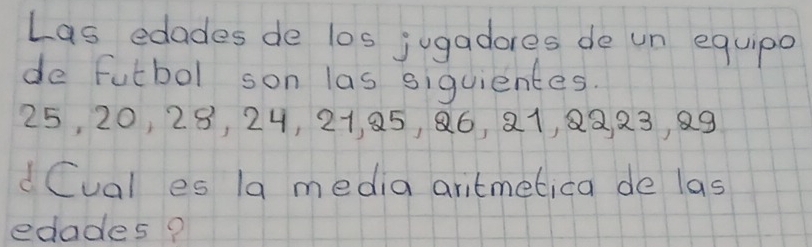 Las edades de los jugadores de un equipo
de Futbol son las siguientes.
25, 20, 28, 24, 21, 25, 26, 21, 22, 23, 29
¿Cual es la media aritmetica de las
edades?